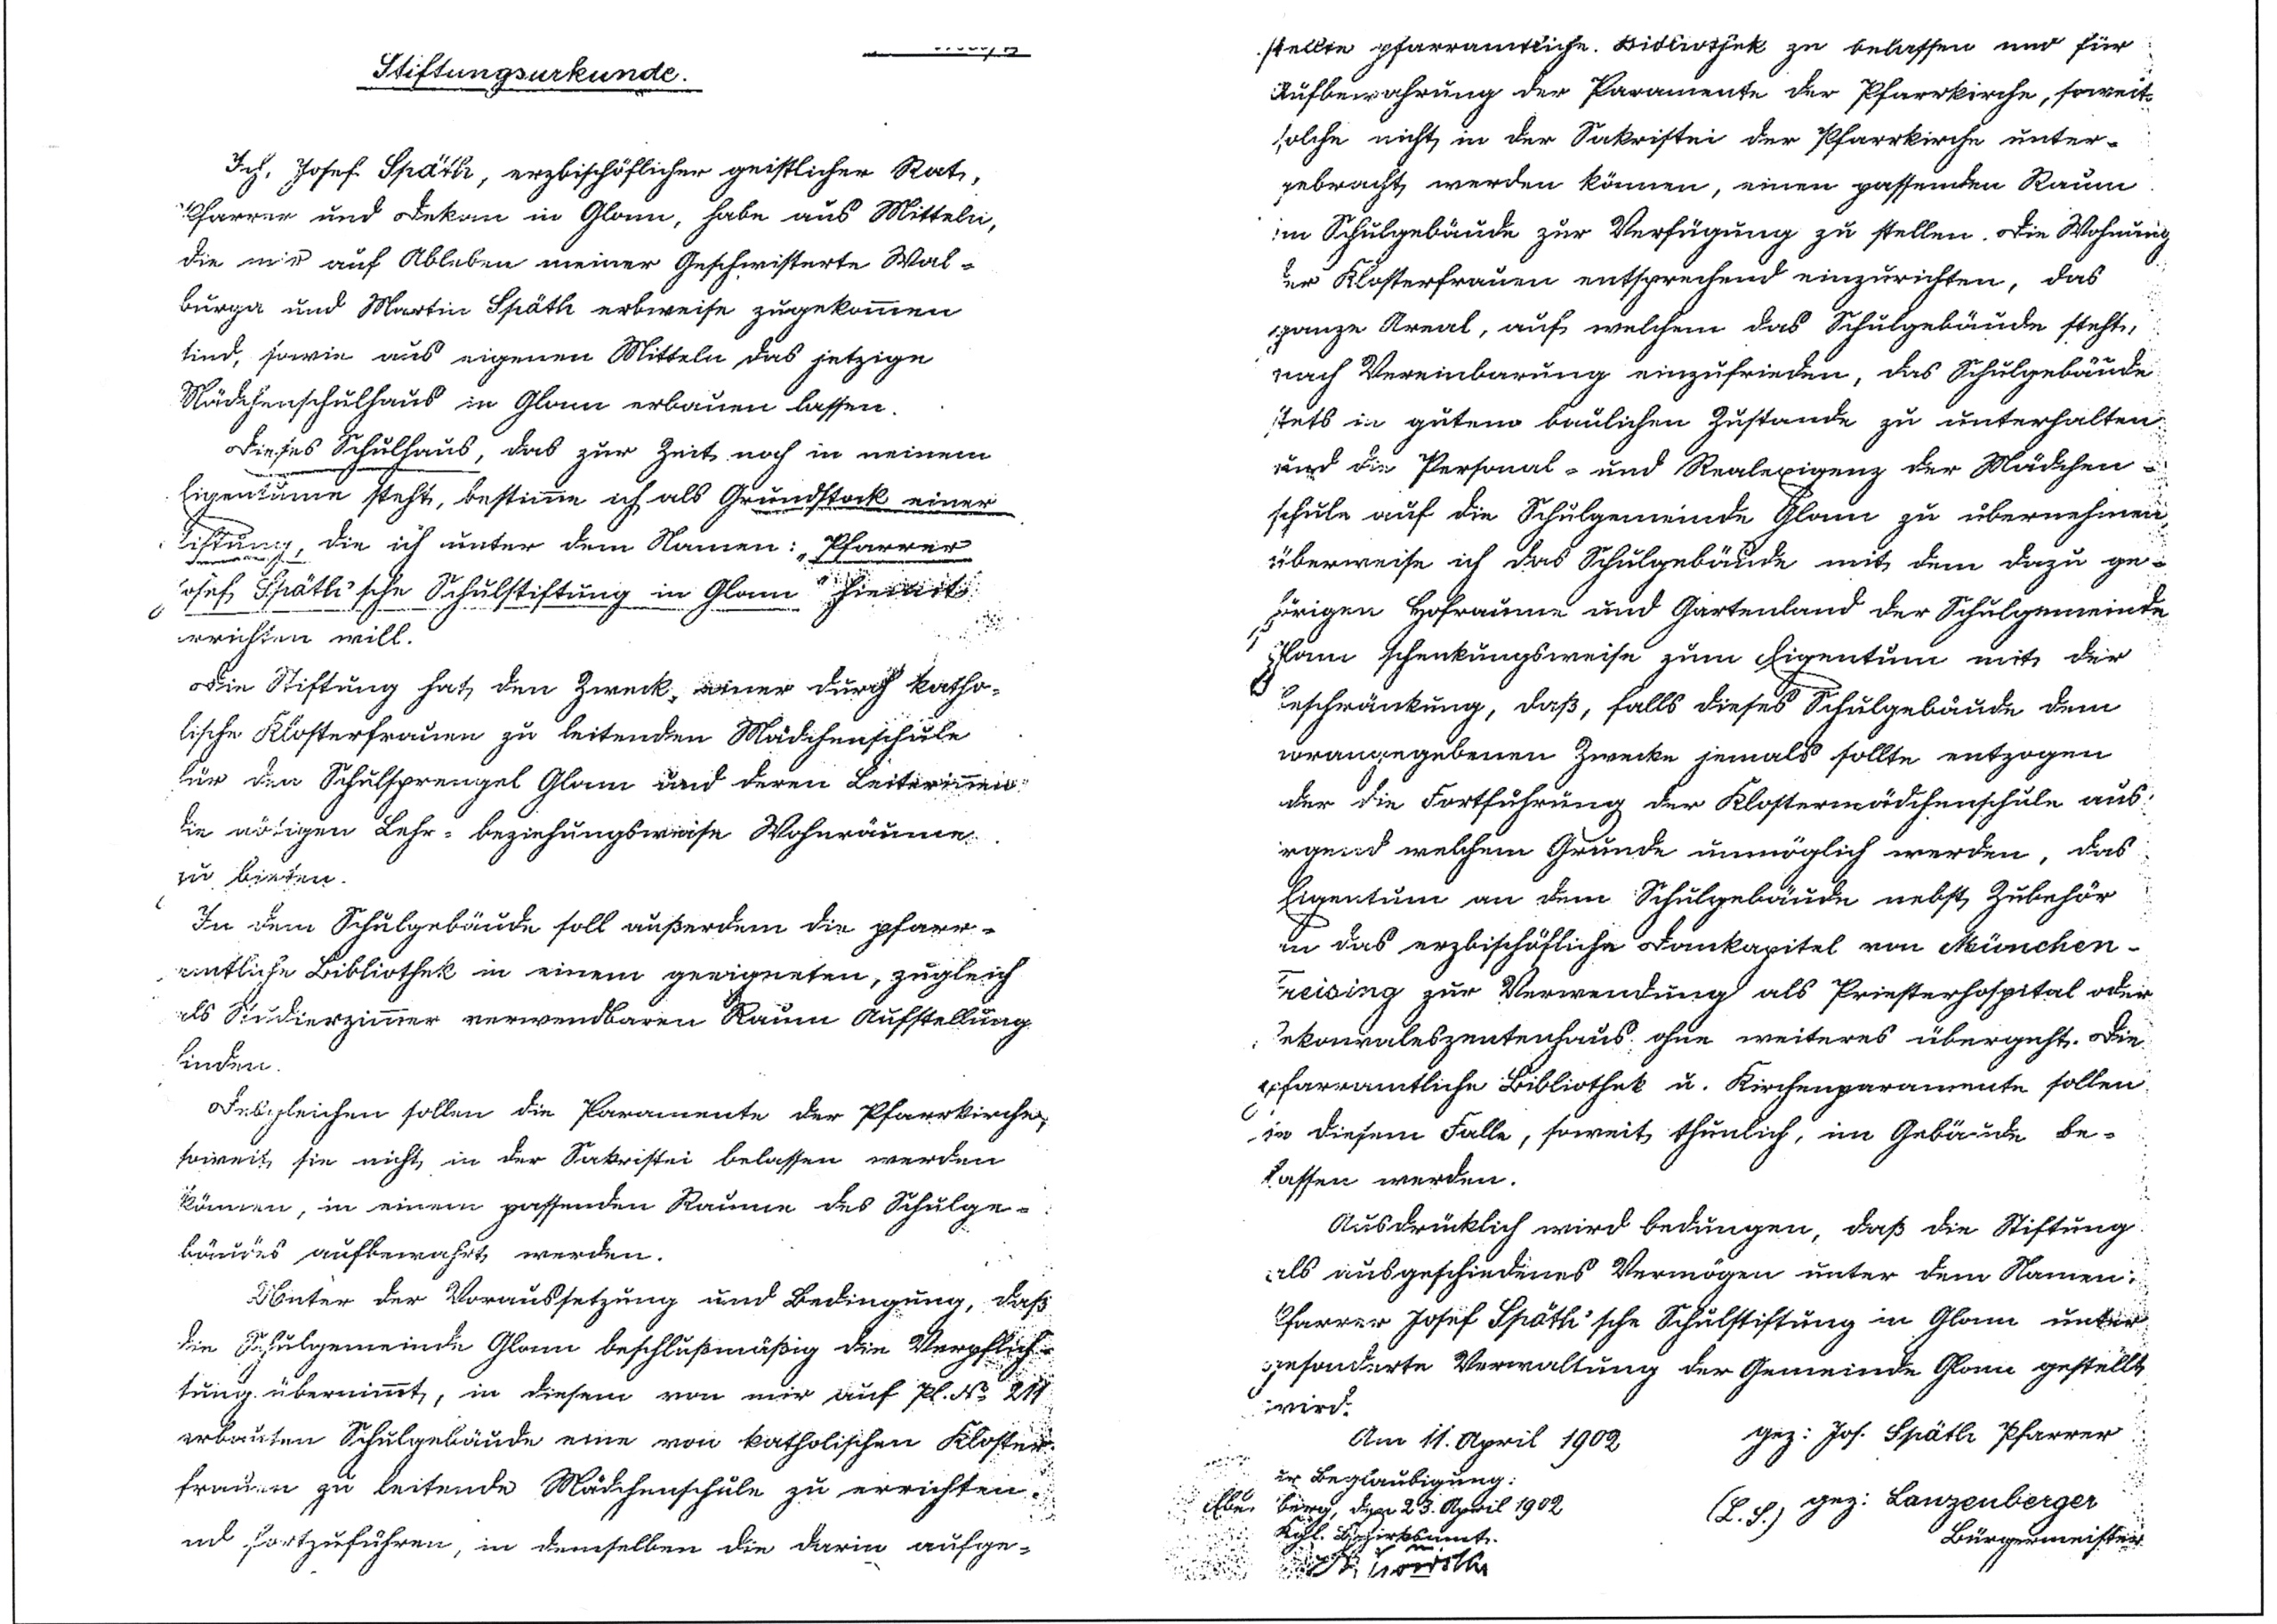 Stiftungsurkunde.
Ich, Josef Späth, erzbischöflicher geistlicher Rat,
Pfarrer und Dekan in Glonn, habe aus Mitteln,
die mir auf Ableben meiner Geschwisterte Wal-
burga und Martin Späth erbweise zugekom̅en
sind, sowie aus eigenen Mitteln das jetzige
Mädchenschulhaus in Glonn erbauen lassen.
Dieses Schulhaus, das zur Zeit noch in meinem
Eigentume steht, bestim̅e ich als Grundstock einer
Stiftung, die ich unter dem Namen: „Pfarrer
Josef Späth'sche Schulstiftung in Glonn" hiemit
errichten will.
Die Stiftung hat den Zweck, einer durch katho-
lische Klosterfrauen zu leitenden Mädchenschule
für den Schulsprengel Glonn und deren Leiterin̅en
die nötigen Lehr- beziehungsweise Wohnräume
zu bieten.
In dem Schulgebäude soll außerdem die pfarr-
amtliche Bibliothek in einem geeigneten, zugleich
als Studierzim̅er verwendbaren Raum Aufstellung
finden.
Desgleichen sollen die Paramente der Pfarrkirche,
soweit sie nicht in der Sakristei belassen werden
können, in einem passenden Raume des Schulge-
bäudes aufbewahrt werden.
Unter der Voraussetzung und Bedingung, daß
die Schulgemeinde Glonn beschlußmäßig die Verpflich-
tung übernim̅t, in diesem von mir auf Pl. No 211
erbauten Schulgebäude eine von katholischen Kloster-
frauen zu leitende Mädchenschule zu errichten
und fortzuführen, in demselben die darin aufge-
stellte pfarramtliche Bibliothek zu belassen und für
Aufbewahrung der Paramente der Pfarrkirche, soweit
solche nicht in der Sakristei der Pfarrkirche unter-
gebracht werden können, einen passenden Raum
im Schulgebäude zur Verfügung zu stellen. Die Wohnung
der Klosterfrauen entsprechend einzurichten, das
ganze Areal, auf welchem das Schulgebäude steht,
nach Vereinbarung einzufrieden, das Schulgebäude
stets in gutem baulichen Zustande zu unterhalten
und die Personal- und Realexigenz der Mädchen-
schule auf die Schulgemeinde Glonn zu übernehmen,
überweise ich das Schulgebäude mit dem dazu ge-
hörigen Hofraume und Gartenland der Schulgemeinde
Glonn schenkungsweise zum Eigentum mit der
Beschränkung, daß, falls dieses Schulgebäude dem
vorangegebenen Zwecke jemals sollte entzogen
oder die Fortführung der Klostermädchenschule aus
irgend welchem Grunde unmöglich werden, das
Eigentum an dem Schulgebäude nebst Zubehör
an das erzbischöfliche Domkapitel von München-
Freising zur Verwendung als Priesterhospital oder
Rekonvaleszentenhaus ohne weiteres übergeht. Die
pfarramtliche Bibliothek u. Kirchenparamente sollen
in diesem Falle, soweit thunlich, im Gebäude be-
lassen werden.
Ausdrücklich wird bedungen, daß die Stiftung
als ausgeschiedenes Vermögen unter dem Namen:
Pfarrer Josef Späth'sche Schulstiftung in Glonn unter
gesonderte Verwaltung der Gemeinde Glonn gestellt
wird.
Am 11. April 1902 gez: Jos. Späth Pfarrer
Zur Beglaubigung:
Ebersberg, den 23. April 1902
Kgl. Bezirksamt.
(L. S.) gez: Lanzenberger
Bürgermeister